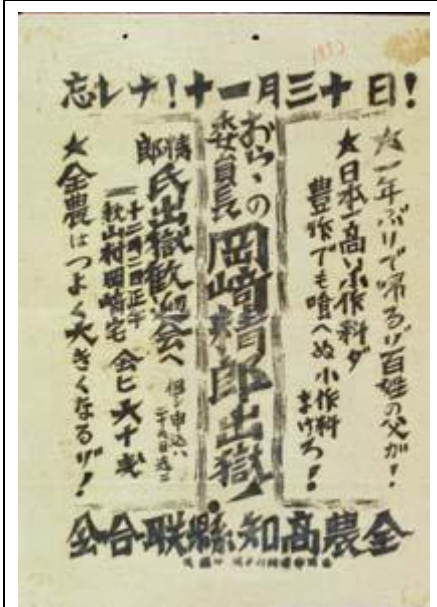 忘レナ!十一月三十日!
☆一年ぶりで帰るゾ百姓の父が!
★日本一高い小作料ダ
豊作デも喰へぬ小作料まけろ!
おらゝの委員長岡崎精郎出獄!
精郎氏出獄歓迎会へ
十二月二日正午
秋山村岡崎宅 会ヒ六十戔
但シ申込ハ二十九日迄ニ
★全農はつよく大きくなるゾ!
全農高知縣聯合会